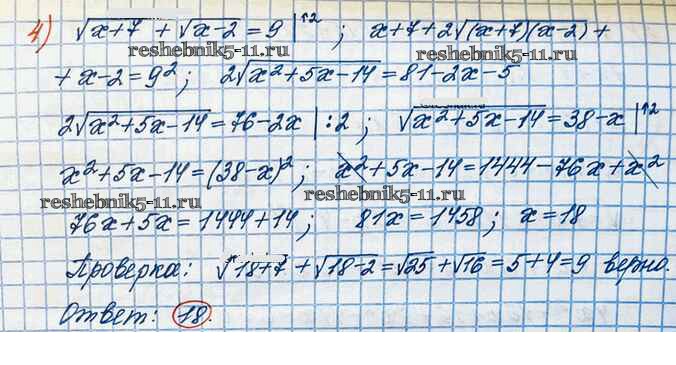 4) √x+7 + √x-2 = 9 |↑2 ; x+7+2√(x+7)(x-2) +
reshebnik5-11.ru reshebnik5-11.ru
+ x-2 = 9²; 2√x²+5x-14 = 81-2x-5
2√x²+5x-14 = 76-2x |:2 ; √x²+5x-14 = 38-x |↑2
x²+5x-14 = (38-x)²; x²+5x-14 = 1444-76x+x²
reshebnik5-11.ru reshebnik5-11.ru
76x+5x = 1444+14; 81x = 1458; x = 18
Проверка: √18+7 + √18-2 = √25 + √16 = 5+4 = 9 верно.
Ответ: 18.